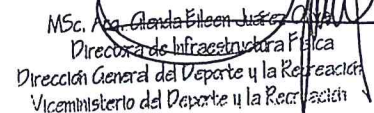 MSc. Arq. Glenda Eileen Juárez
Directora de Infraestructura Física
Dirección General del Deporte y la Recreación
Viceministerio del Deporte y la Recreación